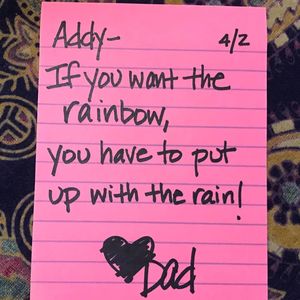 Addy- 4/2
If you want the
rainbow,
you have to put
up with the rain!
Dad